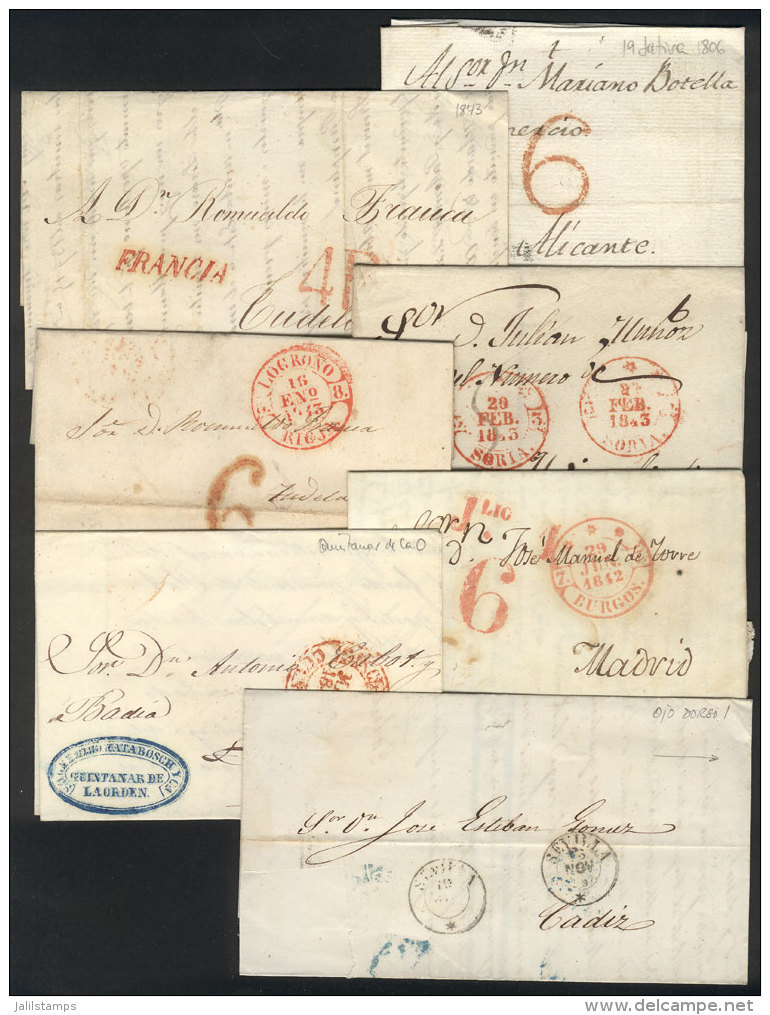 19 Jativa 1806
Al Sor Dn Mariano Botella
6
Alicante.
1843
A Dn Romualdo Franca
FRANCIA
4R
Tudela
Sor D. Julián Muñoz
del Numero de
20
FEB.
1843
SORIA.
FEB.
1843
SORIA.
LOGROÑO
16
ENO
1843
RIOJA
8.
Sor D. Romualdo Franca
6
Tudela
1 LIC
6
Dn José Manuel de Torre
29
1842
BURGOS.
7.
Madrid
Quintanar de la O
Sor Dn Antonio y
Badía
MATABOSCH Y CA
QUINTANAR DE
LA ORDEN.
OJO DORSO!
Sor Dn José Esteban Gomez
SEVILLA
SEVILLA
NOV
Cadiz
jalilstamps
delcampe.net